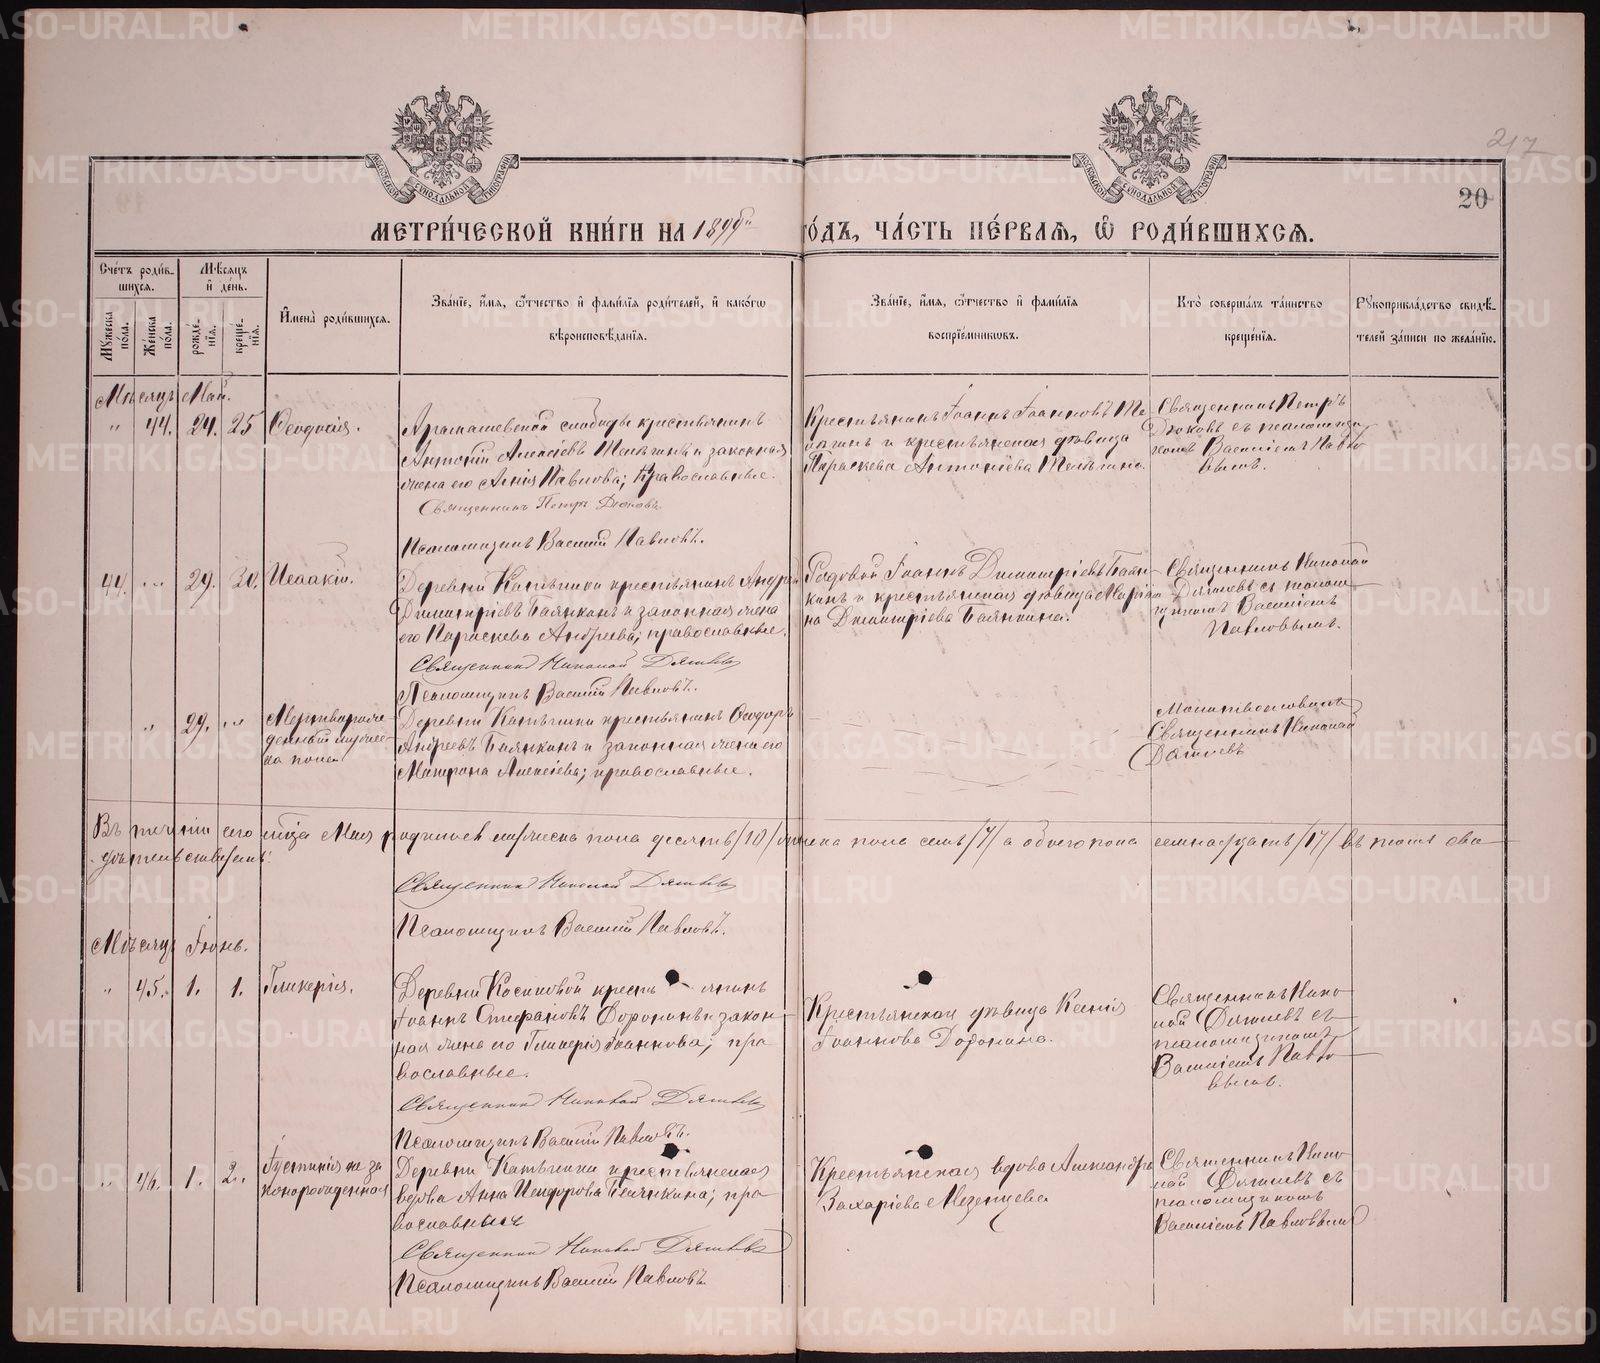 217
20
МЕТРИ́ЧЕСКОЙ КНИ́ГИ НА 1899й ГО́ДЪ, ЧА́СТЬ ПЕ́РВАЯ, Ѽ РОДИ́ВШИХСЯ.
Сче́тъ роди́в-
шихся.
Му́жеска по́ла.
Же́нска по́ла.
Мѣ́сяцъ
и҆ де́нь.
рожде́-
нїѧ.
креще́-
нїѧ.
И҆мена̀ роди́вшихсѧ.
Зва́нїе, и҆́мѧ, ѻ҆́тчество и҆ фами́лїѧ роди́телей, и҆ како́гѡ
вѣроисповѣ́данїѧ.
Зва́нїе, и҆́мѧ, ѻ҆́тчество и҆ фами́лїѧ
воспрїе́мникѡвъ.
Кто̀ соверша́лъ та́инство
креще́нїѧ.
Рꙋкоприкла́дство свидѣ́-
телей за́писи по жела́нїю.
Мѣсяцъ Май.
" 44. 24. 25 Ѳеодосія.
Арамашевской слободы крестьянинъ
Антоній Алексіевъ Телѣгинъ и законная
жена его Анна Павлова; православные.
Священникъ Петръ Дюковъ
Псаломщикъ Василій Павловъ.
Крестьянинъ Іоаннъ Іоанновъ Те
лѣгинъ и крестьянская дѣвица
Параскева Антоніева Телѣгина.
Священникъ Петръ
Дюковъ съ псаломщи
комъ Василіемъ Павло
вымъ.
44. " 29. 30. Исаакій.
Деревни Катышки крестьянинъ Андрей
Димитріевъ Бѣлянкинъ и законная жена
его Параскева Андреева; православные.
Священникъ Николай
Псаломщикъ Василій Павловъ.
Рядовой Іоаннъ Димитріевъ Бѣлян
кинъ и крестьянская дѣвица Марі
на Димитріева Бѣлянкина.
Священникъ Николай
съ псалом
щикомъ Василіемъ
Павловымъ.
" 29. " Мертворож
денный мужес
ка пола
Деревни Катышки крестьянинъ Ѳеодоръ
Андреевъ Бѣлянкинъ и законная жена его
Матрона Алексіева; православные.
Молитвословилъ
Священникъ Николай
Въ теченіи сего мѣсяца Мая родилось мужеска пола десять /10/ женска пола семь /7/ а обоего пола семнадцать /17/ въ томъ сви
дѣтельствуемъ:
Священникъ Николай
Псаломщикъ Василій Павловъ.
Мѣсяцъ Іюнь.
" 45. 1. 1. Гликерія.
Деревни Косиковой кресть янинъ
Іоаннъ Стефановъ Доронинъ и закон
ная жена его Гликерія Іоаннова; пра
вославные.
Священникъ Николай
Псаломщикъ Василій Павловъ.
Крестьянская дѣвица Ксенія
Іоаннова Доронина.
Священникъ Нико
лай съ
псаломщикомъ
Василіемъ Павло
вымъ.
" 46. 1. 2. Іустинія не за
коннорожденная
Деревни Катышки крестьянская
вдова Анна Исидорова Бѣлянкина; пра
вославныя
Священникъ Николай
Псаломщикъ Василій Павловъ.
Крестьянская вдова Александра
Захаріева Мезенцева
Священникъ Нико
лай съ
псаломщикомъ
Василіемъ Павловымъ
METRIKI.GASO-URAL.RU